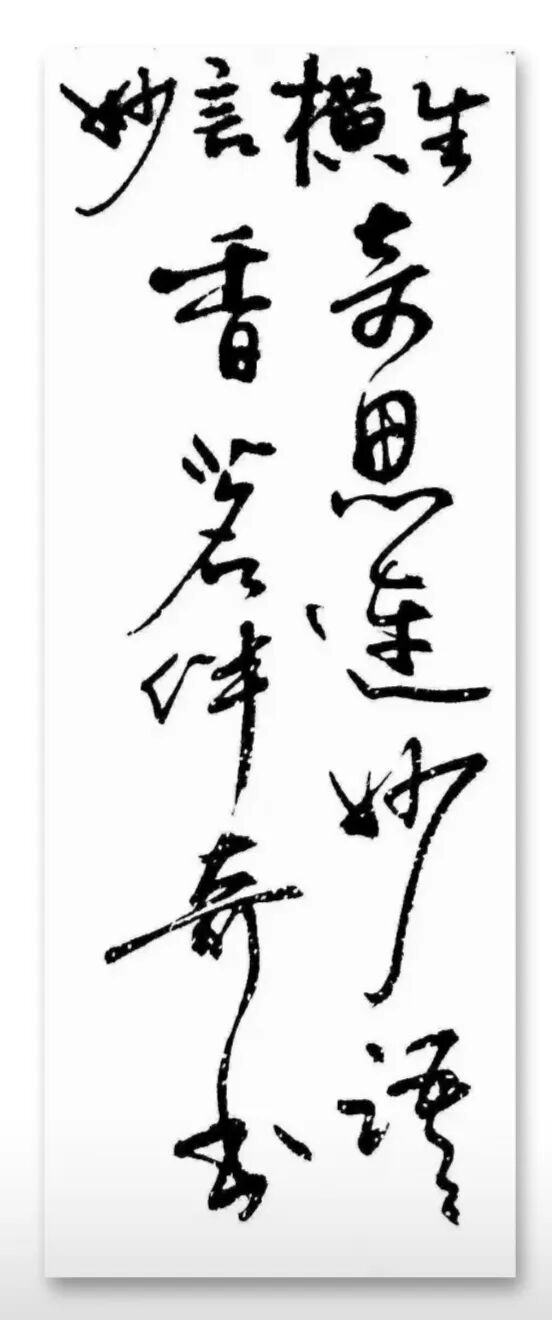 妙言横生
奇思連妙語
香茗伴奇书